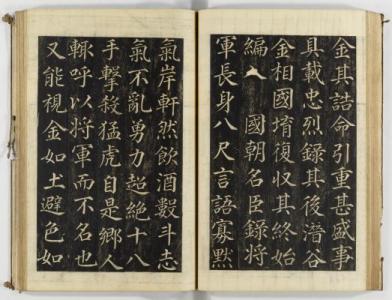 金其誥命引重甚盛事
具載忠烈錄其後潛谷
金相國堉復収其終始
編入 國朝名臣錄將
軍長身八尺言語寡默
氣岸軒然飲酒數斗志
氣不亂勇力超絶十八
手擊殺猛虎自是鄉人
輒呼以将軍而不名也
又能視金如土避色如